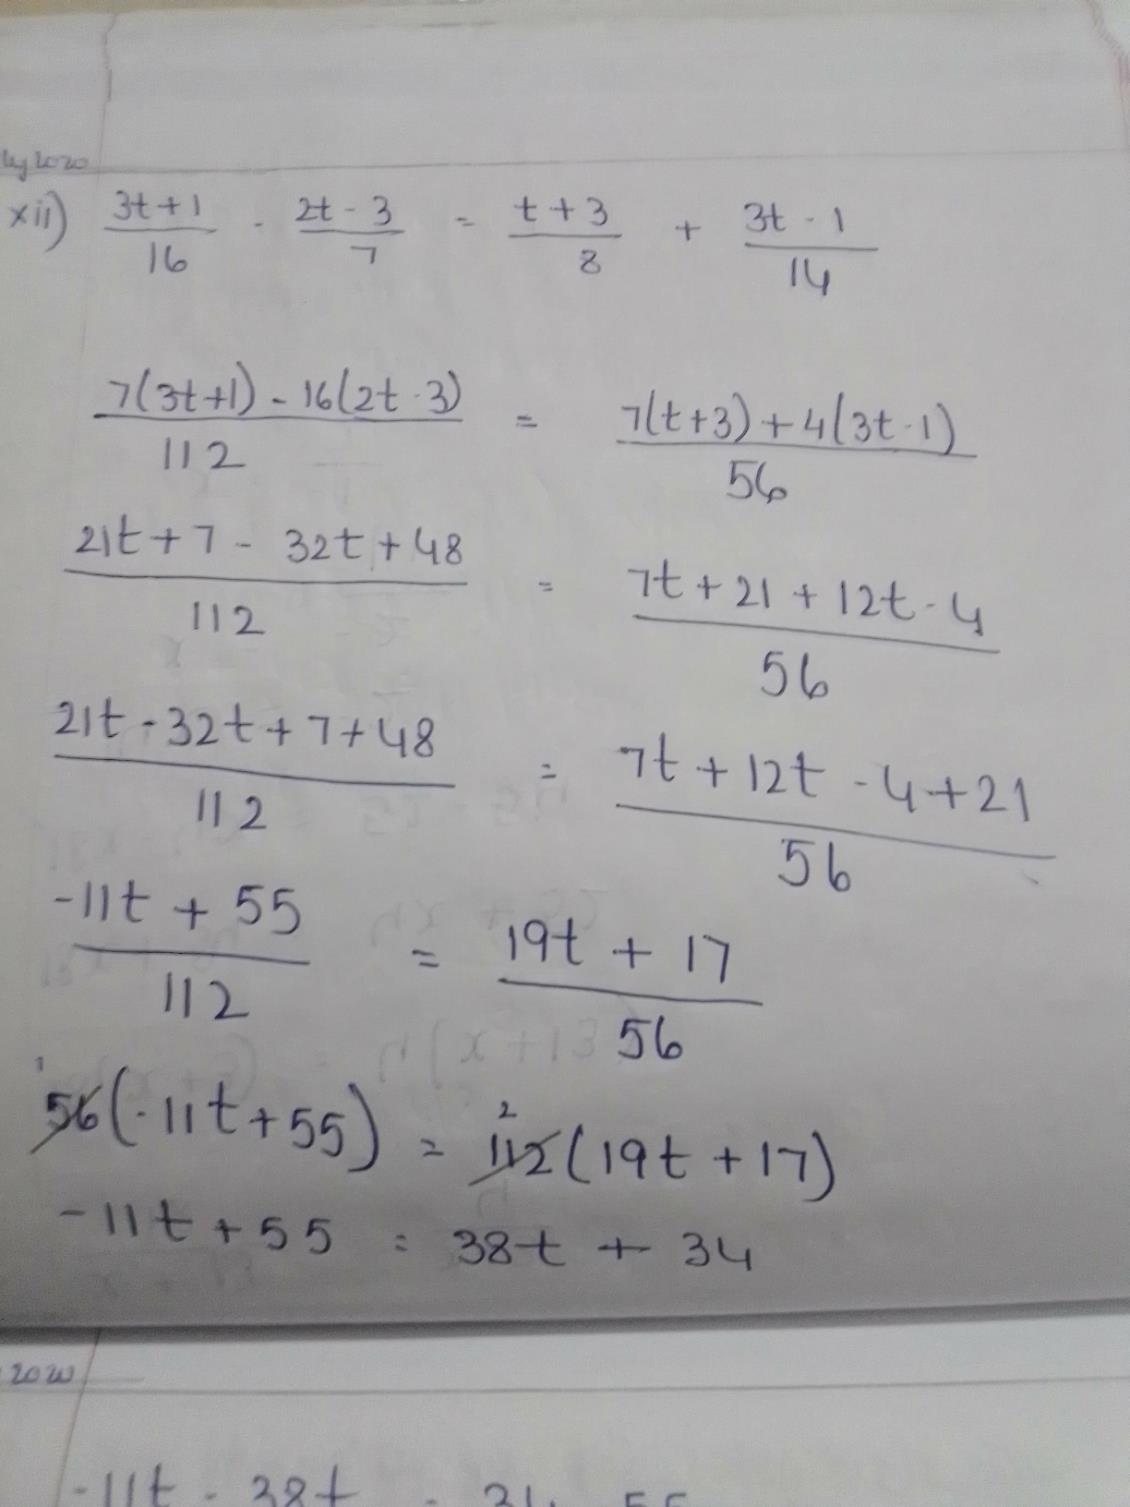 2020
xii) (3t+1)/16 - (2t-3)/7 = (t+3)/8 + (3t-1)/14
(7(3t+1) - 16(2t-3))/112 = (7(t+3) + 4(3t-1))/56
(21t+7 - 32t+48)/112 = (7t+21+12t-4)/56
(21t-32t+7+48)/112 = (7t+12t-4+21)/56
(-11t+55)/112 = (19t+17)/56
1 2
56(-11t+55) = 112(19t+17)
-11t+55 = 38t+34
2020
-11t - 38t = 34 - 55